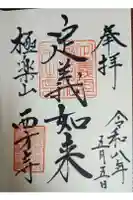 奉拝
令和八年
五月五日
定義如来
極楽山
西方寺